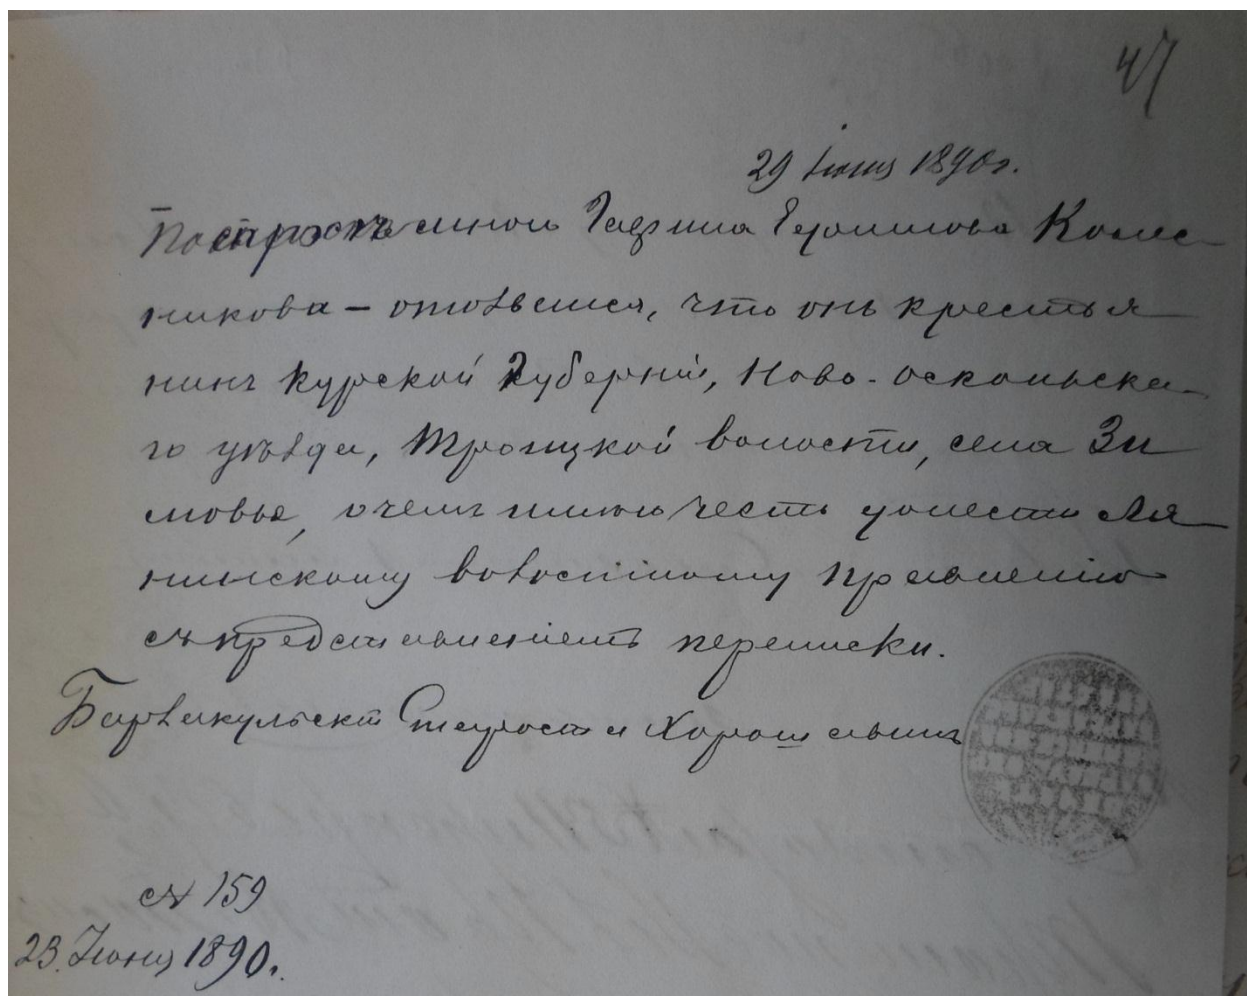 47
29 Июня 1890 г.
По спросъ мною Гаврила Ерошкова Колес-
никова – отозвался, что онъ крестья
нинъ Курской Губерніи, Ново-Оскольска-
го уѣзда, Троицкой волости, села Зи
мовье, о чемъ имею честь донести
волостному Правленію
съ представленіемъ переписки.
Староста Хорошавинъ
№ 159
23. Июня 1890 г.